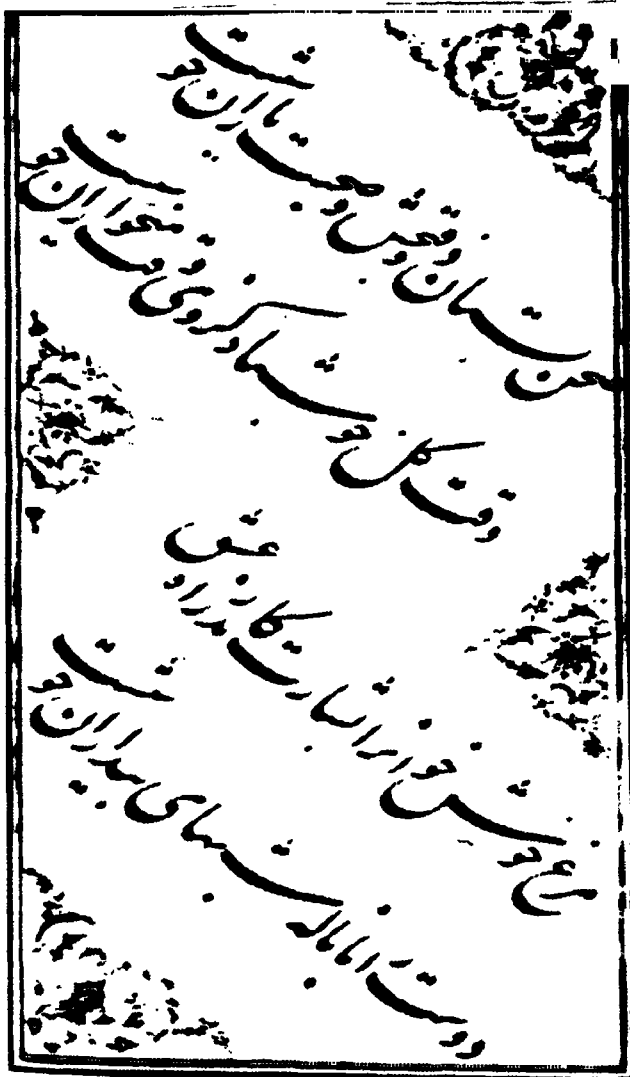 صحن بستان ذوق بخش و صحبت یاران خوشست
وقت گل خوش باد کز وی وقت میخواران خوشست
مرغ خوش خوانرا بشارت کاندر راه عشق
دوست را با ناله شبهای بیداران خوشست